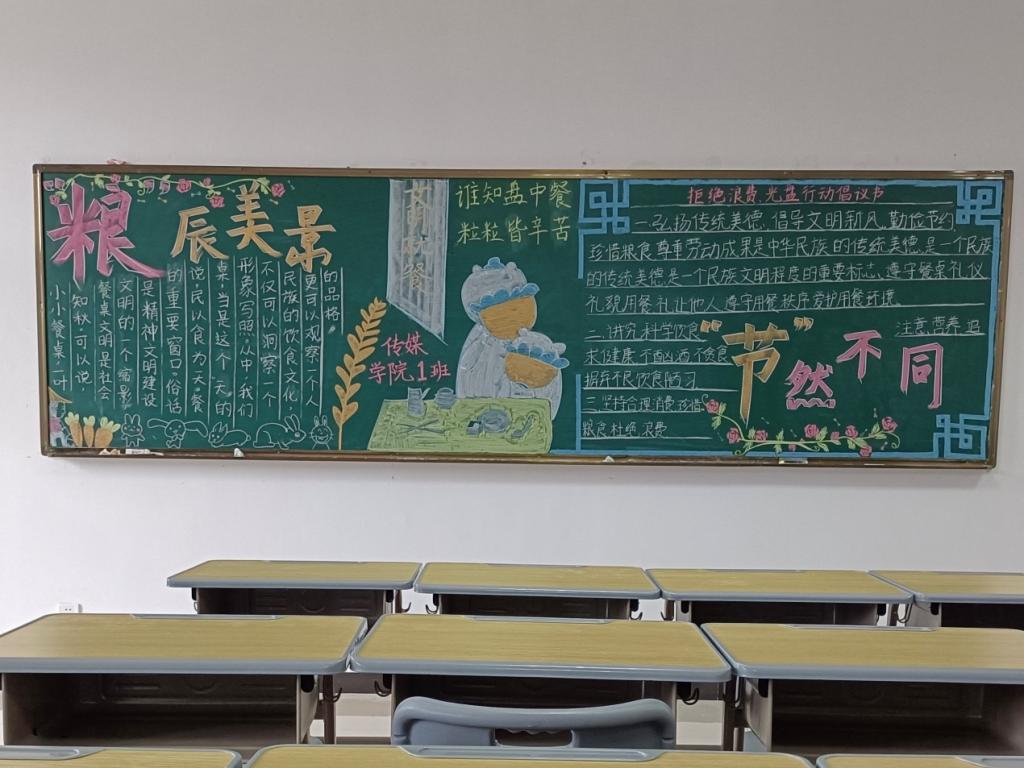 粮辰美景
小小餐桌一叶
知秋可以说
餐桌文明是社会
文明的一个缩影
是精神文明建设
的重要窗口。俗话
说,民以食为天。餐
桌,当是这个“天”的
形象写照,从中我们
不仅可以洞察一个
民族的饮食文化,
更可以观察一个人
的品格。
文明就餐
谁知盘中餐
粒粒皆辛苦
传媒
学院1班
拒绝浪费,光盘行动倡议书
一弘扬传统美德,倡导文明新风,勤俭节约,
珍惜粮食尊重劳动成果是中华民族的传统美德,是一个民族
的传统美德,是一个民族文明程度的重要标志、遵守餐桌礼仪
礼貌用餐礼让他人遵守用餐秩序爱护用餐环境。
二、讲究科学饮食
注意,营养追
求健康不酗酒不偏食
摒弃不良饮食陋习
三坚持合理消费珍惜
粮食杜绝浪费
“节”然不同